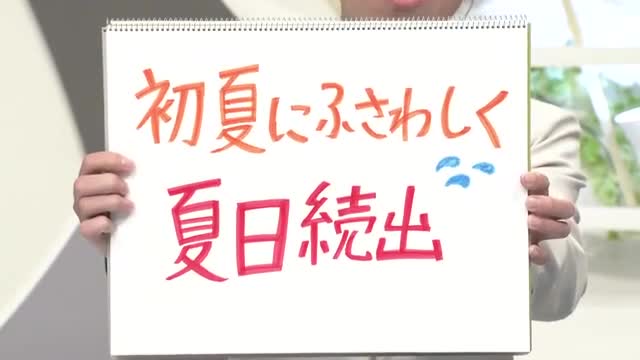 初夏にふさわしく
夏日続出